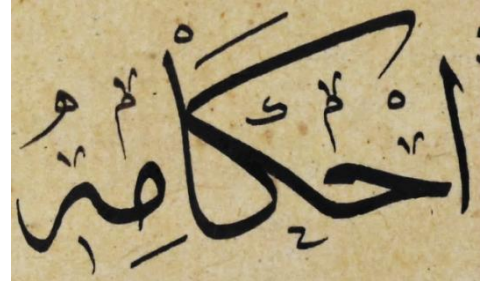 احْكَامِهُ